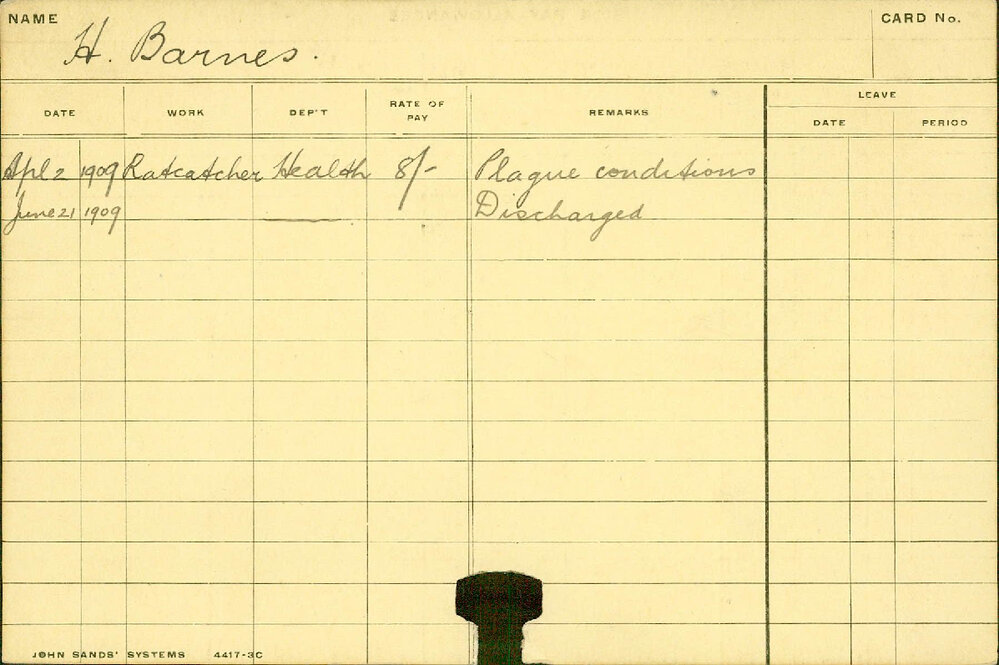 NAME H. Barnes. CARD No.
DATE WORK DEP'T RATE OF PAY REMARKS LEAVE
DATE PERIOD
Apl 2 1909 Ratcatcher Health 8/- Plague conditions
June 21 1909 Discharged
JOHN SANDS' SYSTEMS 4417-3C